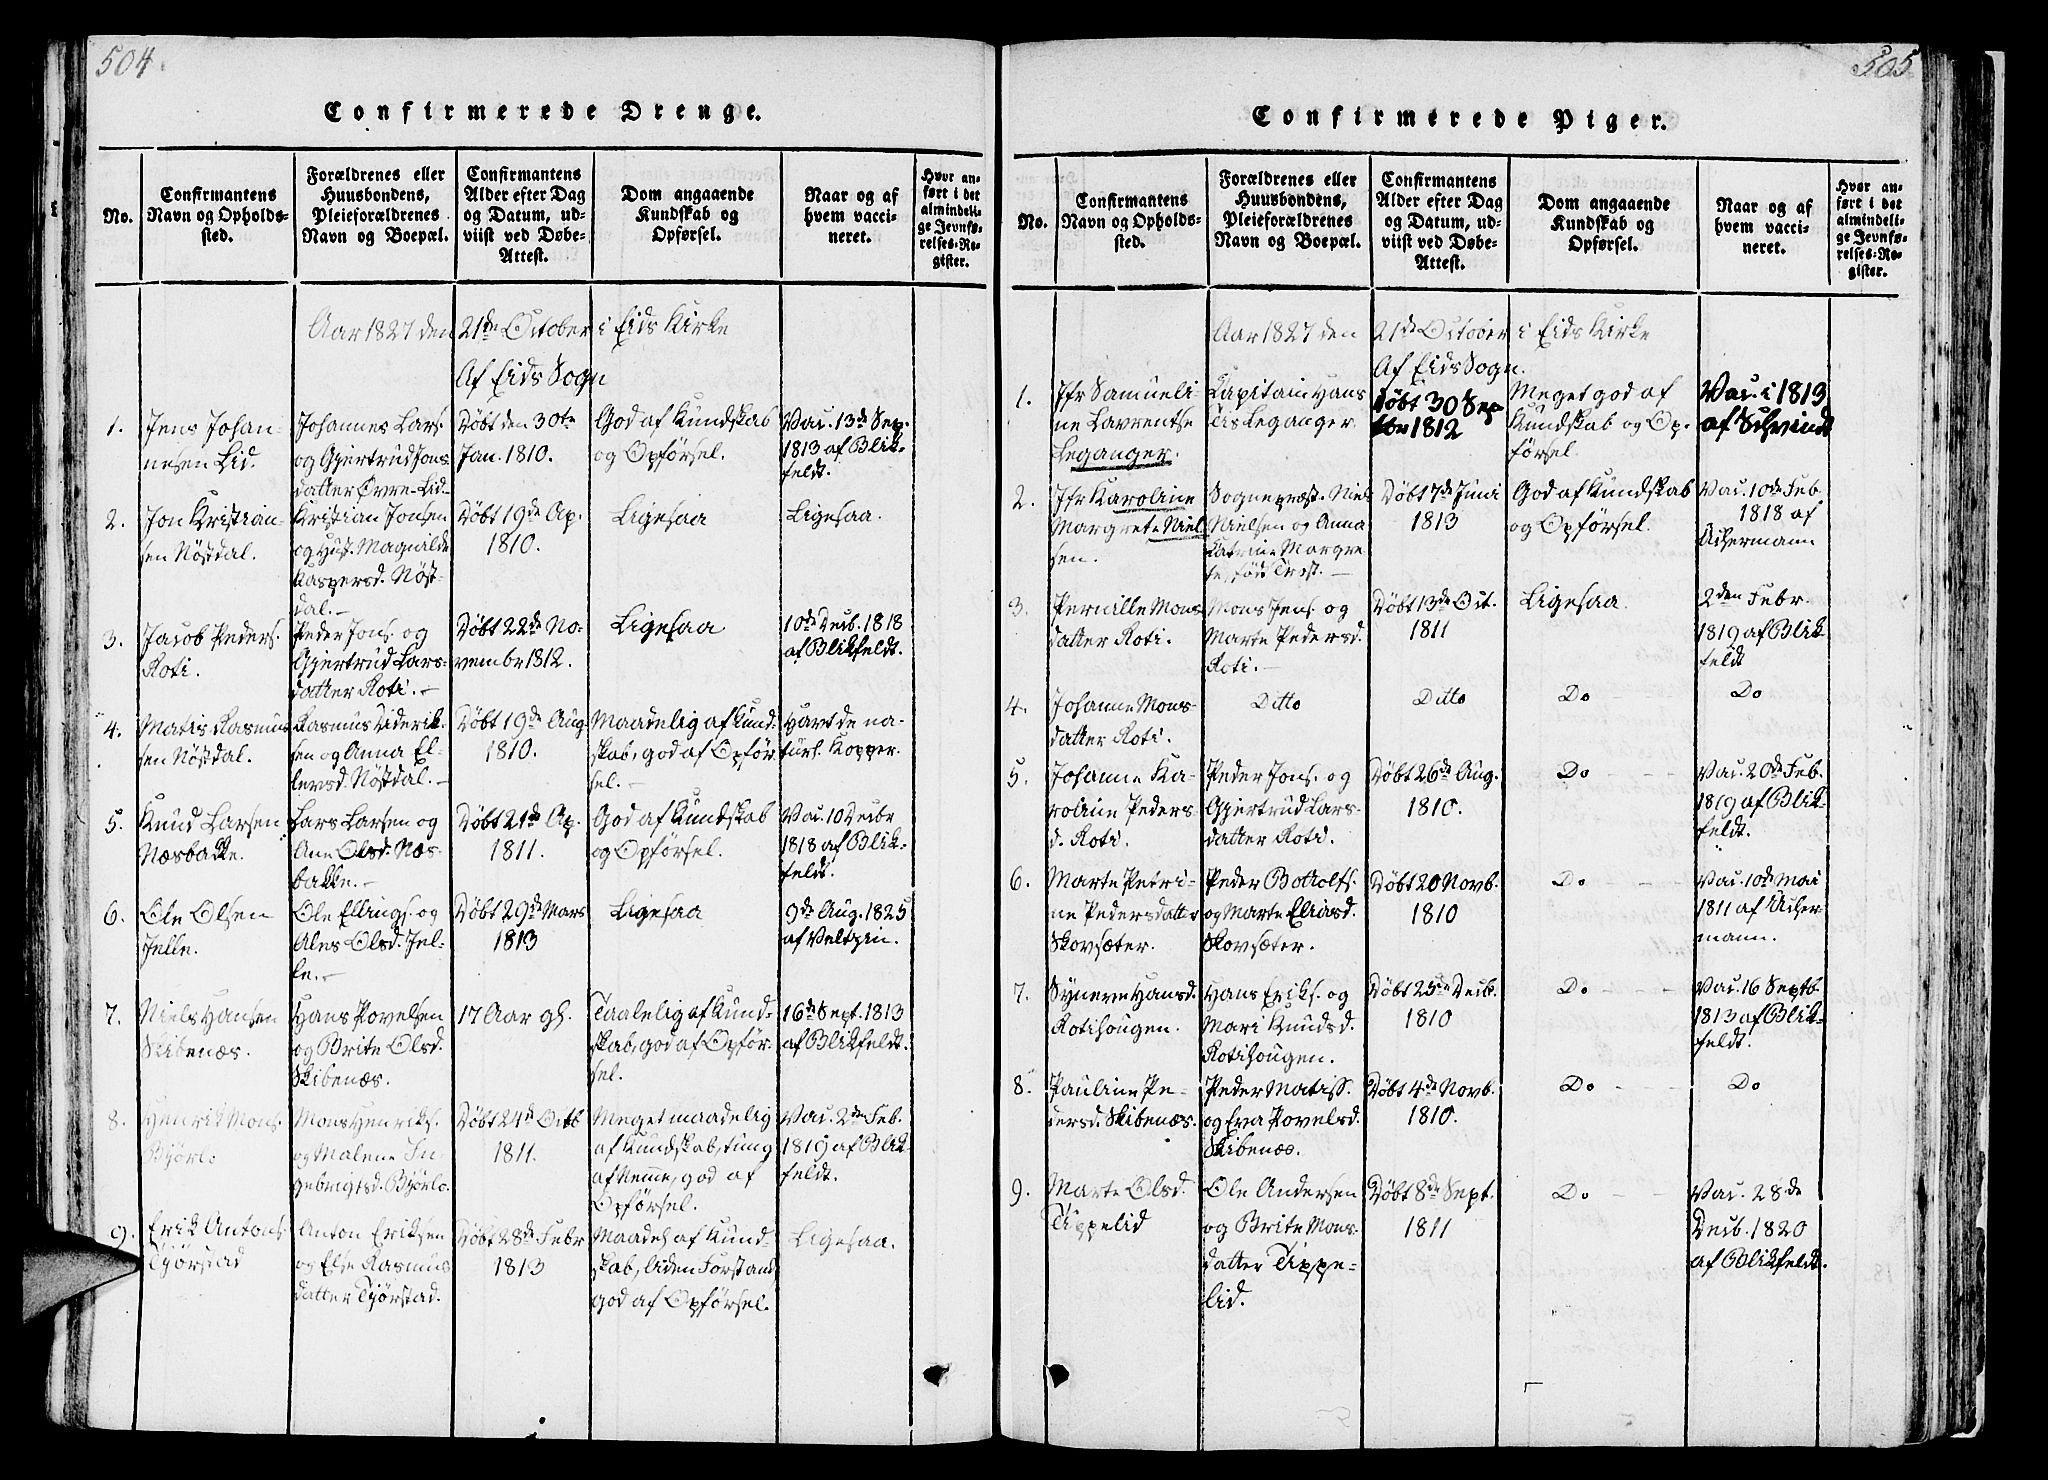 504.
Confirmerede Drenge.
No.
Confirmantens
Navn og Opholds-
sted.
Forældrenes eller
Huusbondens,
Pleieforældrenes
Navn og Boepæl.
Confirmantens
Alder efter Dag
og Datum, ud-
viist ved Døbe-
Attest.
Dom angaaende
Kundskab og
Opførsel.
Naar og af
hvem vacci-
neret.
Hvor an-
ført i det
almindeli-
ge Jevnfø-
relses-Re-
gister.
Aar 1827 den 21de October i Eids Kirke
Af Eids Sogn
1.
Jens Johan-
nesen Lid.
Johannes Lars.
og Gjertrud Jons-
datter Øvre-Lid.
Døbt den 30te
Jan. 1810.
God af Kundskab
og Opførsel.
Vac. 13de Sep.
1813 af Blik-
feldt.
2.
Jon Kristian-
sen Nøstdal.
Kristian Jonsen
og Hust. Magnilde
Kaspersd. Nøst-
dal.-
Døbt 19de Ap.
1810.
Ligesaa
Ligesaa.
3.
Jacob Peders.
Roti.
Peder Jons. og
Gjertrud Lars-
datter Roti.-
Døbt 22de No-
vembr 1812.
Ligesaa
10de Decb. 1818
af Blikfeldt.
4.
Matis Rasmus
sen Nøstdal.
Rasmus Diderik-
sen og Anna El-
lersd. Nøstdal.-
Døbt 19de Aug
1810.
Maadelig af Kund-
skab, god af Opfør
sel.-
Havt de na-
turl. Kopper.
5.
Knud Larsen
Næsbakke.
Lars Larsen og
Ane Olsd. Næs-
bakke.-
Døbt 21de Ap.
1811.
God af Kundskab
og Opførsel.
Vac. 10 Decbr
1818 af Blik-
feldt.
6.
Ole Olsen
Jelle.
Ole Ellings. og
Ales Olsd. Jel-
le.-
Døbt 29de Mars
1813
Ligesaa
9de Aug. 1825
af Veltzin.
7.
Niels Hansen
Skibenæs.
Hans Povelsen
og Brite Olsd.
Skibenæs.
17 Aar gl.
Taalelig af Kund-
skab, god af Opfør-
sel.
16de Sept. 1813
af Blikfeldt.
8.
Henrik Mons.
Bjørlo
Mons Henriks.
og Malene In-
gebrigtsd. Bjørlo.
Døbt 24de Octb
1811.
Meget maadelig
af Kundskab, tung
af Nemme, god af
Opførsel.
Vac. 2den Feb.
1819 af Blik-
feldt.
9.
Erik Antons.
Tjørstad
Anton Eriksen
og Else Rasmus
datter Tjørstad.
Døbt 28de Febr
1813
Maadel. af Kund-
skab, liden Forstand
god af Opførsel.
Ligesaa.
505
Confirmerede Piger.
No.
Confirmantens
Navn og Opholds-
sted.
Forældrenes eller
Huusbondens,
Pleieforældrenes
Navn og Boepæl.
Confirmantens
Alder efter Dag
og Datum, ud-
viist ved Døbe-
Attest.
Dom angaaende
Kundskab og
Opførsel.
Naar og af
hvem vacci-
neret.
Hvor an-
ført i det
almindeli-
ge Jevnfø-
relses-Re-
gister.
Aar 1827 den 21de October i Eids Kirke
Af Eids Sogn.
1.
Jfr Samueli-
ne Lavrentse
Leganger.
Kapitain Hans
Tis Leganger.
Døbt 30 Sep
tbr 1812
Meget god af
Kundskab og Op-
førsel.
Vac. i 1813
af Schvindt
2.
Jfr Karoline
Margrete Niel
sen.
Sognepræst. Niel
Nielsen og Anna
Katrine Margre
te, født Trost.-
Døbt 7de Juni
1813
God af Kundskab
og Opførsel.
Vac. 10de Feb.
1818 af
Ackermann
3.
Pernille Mons
datter Roti.
Mons Jens. og
Marte Pedersd.
Roti.-
Døbt 13de Oct.
1811
Ligesaa.
2den Febr.
1819 af Blik
feldt
4.
Johanne Mons-
datter Roti.
Ditto
Ditto
Do
Do
5.
Johanne Ka-
roline Peders
d. Roti.
Peder Jons. og
Gjertrud Lars-
datter Roti.
Døbt 26de Aug.
1810.
Do
Vac. 20de Feb.
1819 af Blik-
feldt.
6.
Marte Petri-
ne Pedersdatter
Skovsæter.
Peder Botolfs.
og Marte Eliasd.
Skovsæter.
Døbt 20 Novb.
1810
Do
Vac. 10de Mai
1811 af Acker-
mann.
7.
Synneve Hansd.
Rotihougen.
Hans Eriks. og
Mari Knudsd.
Rotihougen.
Døbt 25de Decb.
1810
Do
Vac. 16 Septb.
1813 af Blik-
feldt.
8.
Pauline Pe-
dersd. Skibenæs.
Peder Matiss.
og Eva Povelsd.
Skibenæs.
Døbt 4de Novb.
1810.
Do
Do
9.
Marte Olsd.
Tippelid
Ole Andersen
og Brite Mons-
datter Tippe-
lid.
Døbt 8de Sept.
1811
Do
Vac. 28de
Decb. 1820
af Blikfeldt.